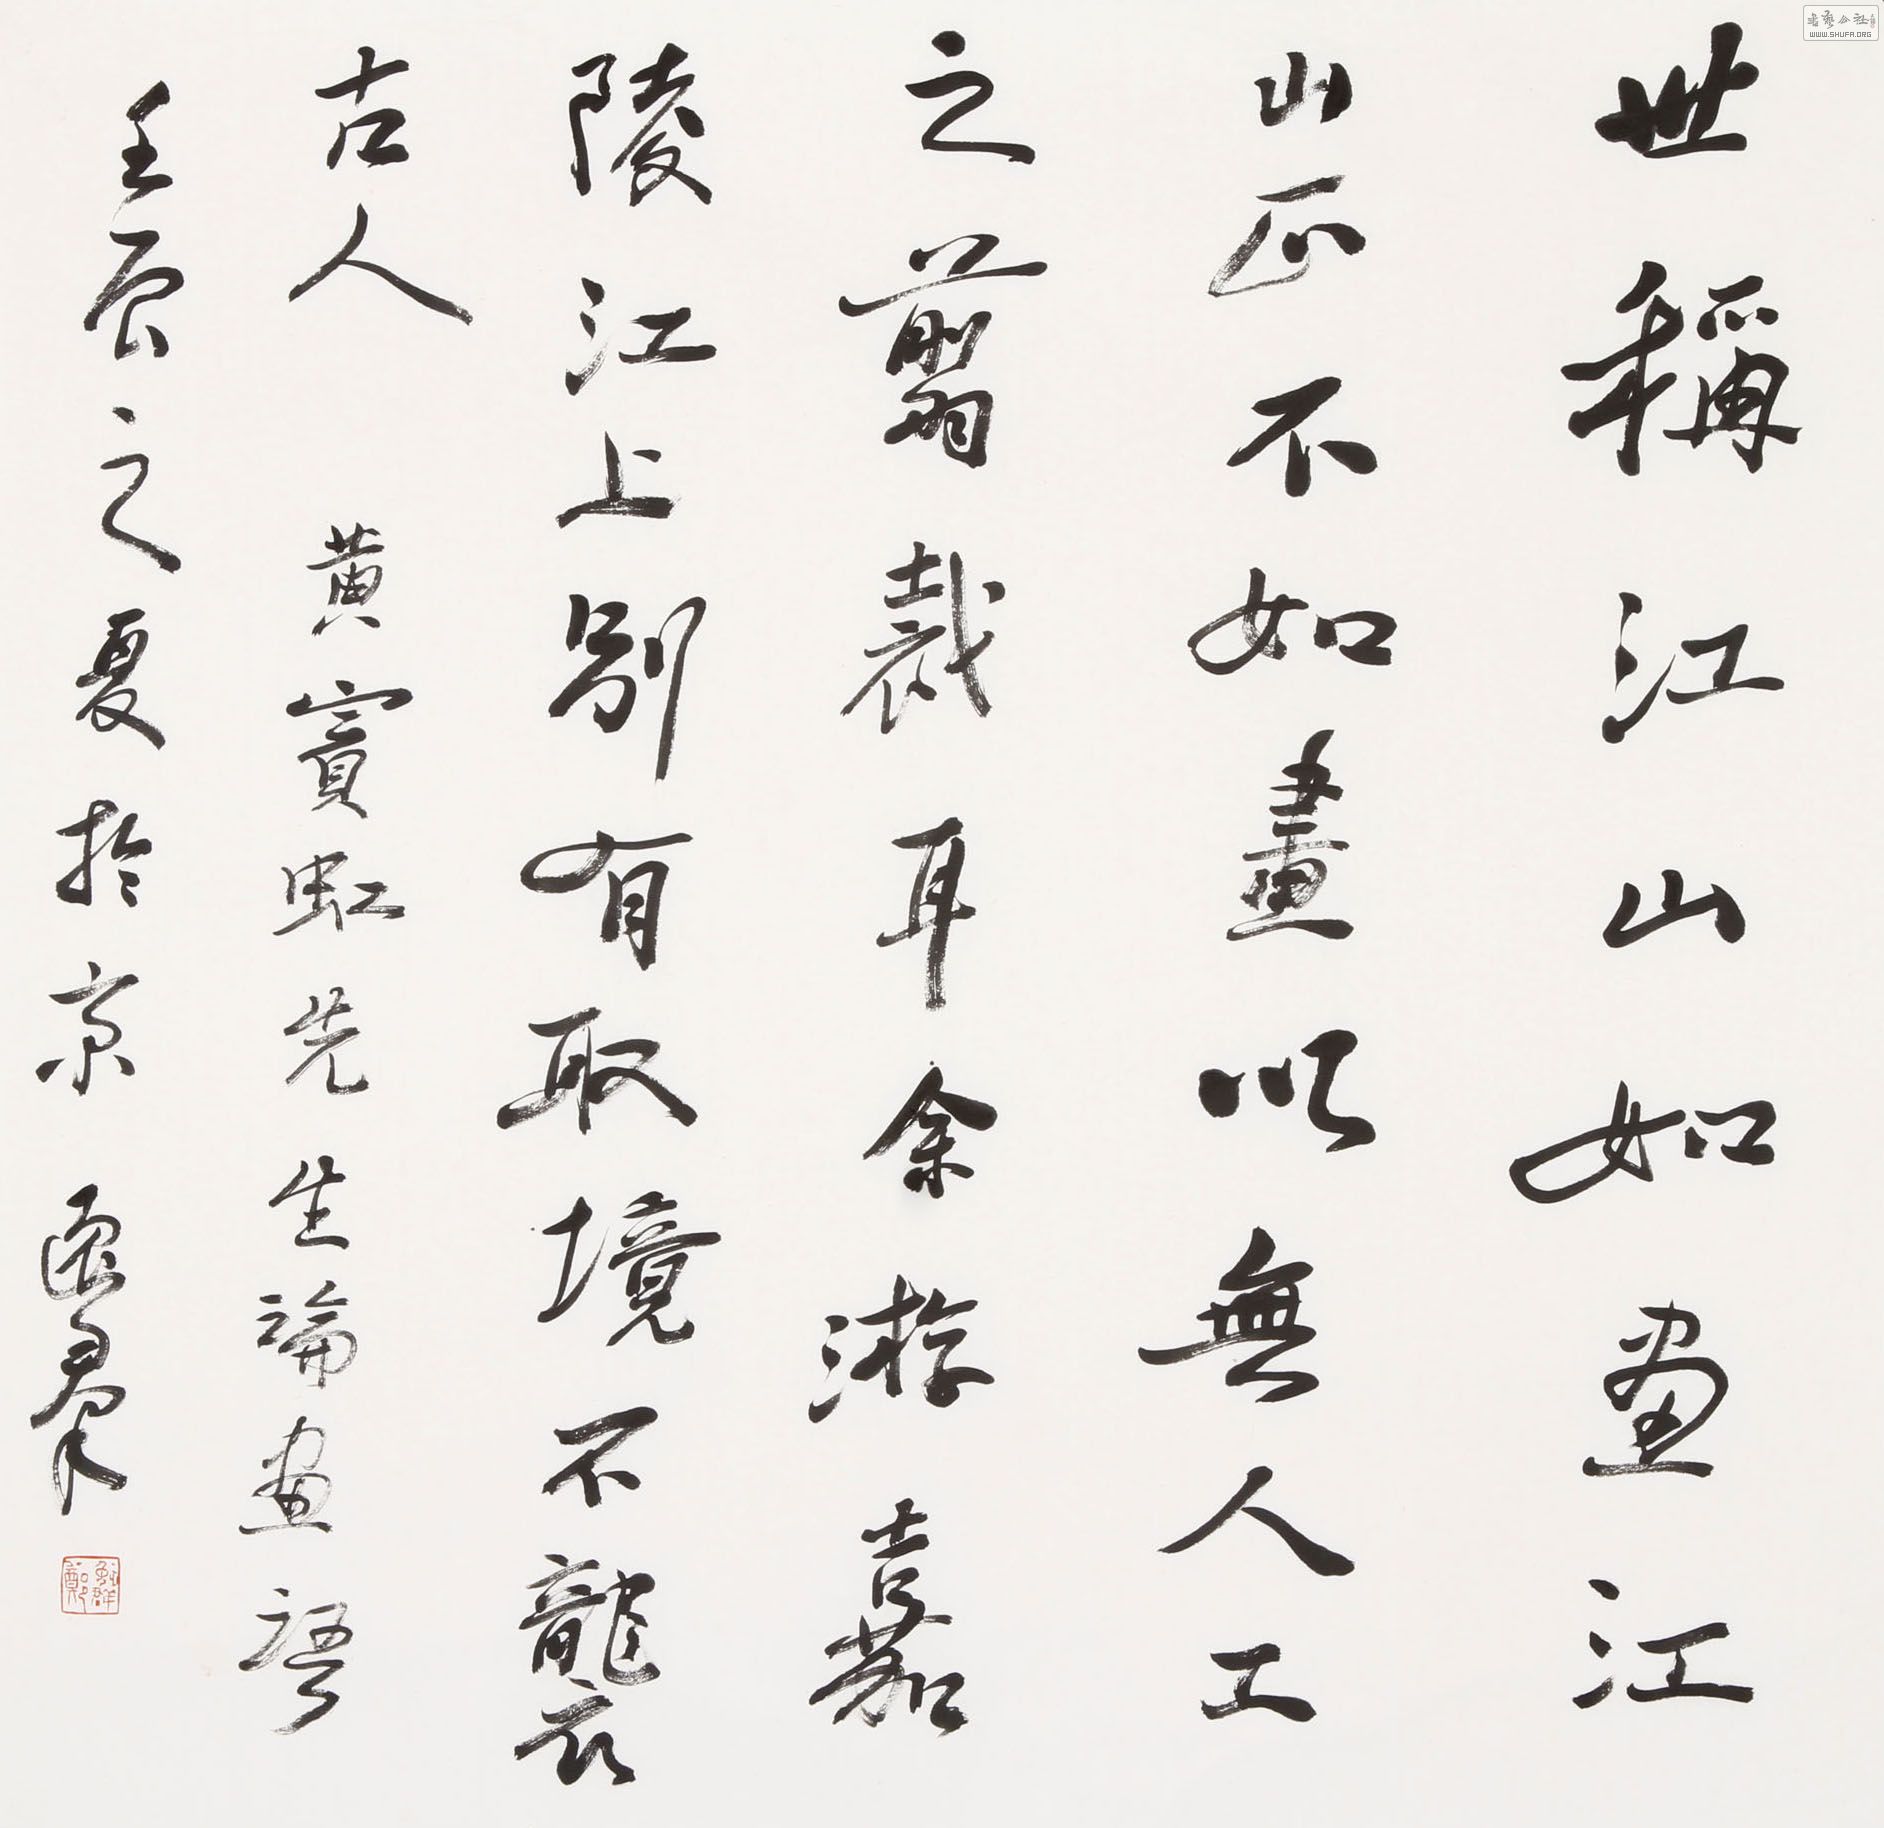 世稱江山如画江
山正不如畫以無人工
之翦裁耳余游嘉
陵江上别有取境不襲
古人 黄賓虹先生論画語
壬辰之夏於京
WWW.SHUFA.ORG